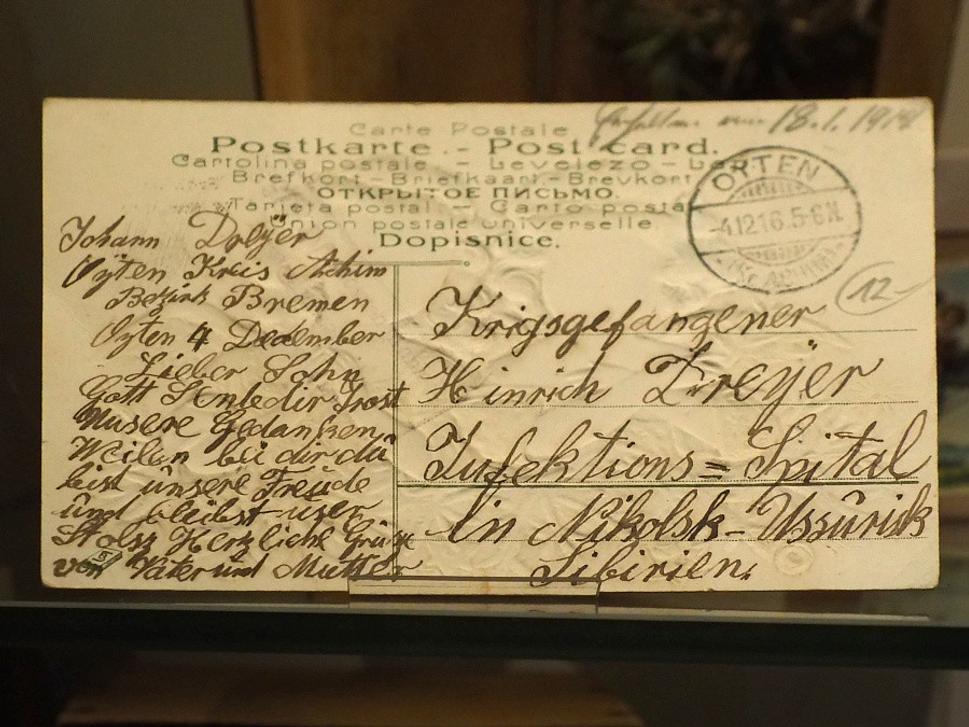 Carte Postale
Postkarte - Post card.
Cartolina postale - Levelezo - L
Brefkort - Briefkaart - Brevkort
ОТКРЫТОЕ ПИСЬМО.
Tarjeta postal - Carto posta
Union postale universelle
Dopisnice.
18.1.191
OYTEN
4.12.16.5-6N
12
Johann Dreÿer
Oÿten Kreis Achim
Bezirk Bremen
Oyten 4 Decdember
Lieber Sohn
Gott Sende dir Trost
Unsere Gedanken
Weilen bei dir dū
bist ūnsere Freūde
ūnd bleibst unser
Stolsz Herzliche Grüße
von Vater und Mutter
Krigsgefangener
Hinrich Dreÿer
Infektions = Spital
In Nikolsk - Ussūrisk
Sibirien.